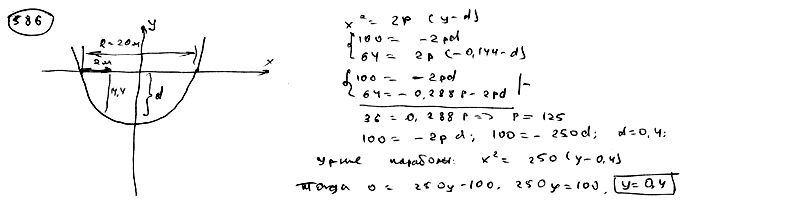 586
y
x
l = 20м
2м
14,4
d
x² = 2p (y-d)
100 = -2pd
64 = 2p (-0,144-d)
100 = -2pd
64 = -0,288p - 2pd
36 = 0,288p => p = 125
100 = -2pd; 100 = -250d; d=0,4;
Ур-ние параболы: x² = 250(y-0,4)
Тогда 0 = 250y-100, 250y=100, y=0,4